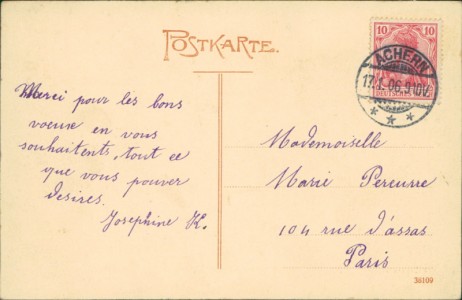 POSTKARTE.
10 10
DEUTSCHES
ACHERN
17.1.06.9-10V.
* * *
Merci pour les bons
voeux en vous
souhaitents, tout ce
que vous pouver
desires.
Josephine K.
Mademoiselle
Marie Pereurre
104 rue d'assas
Paris
36109